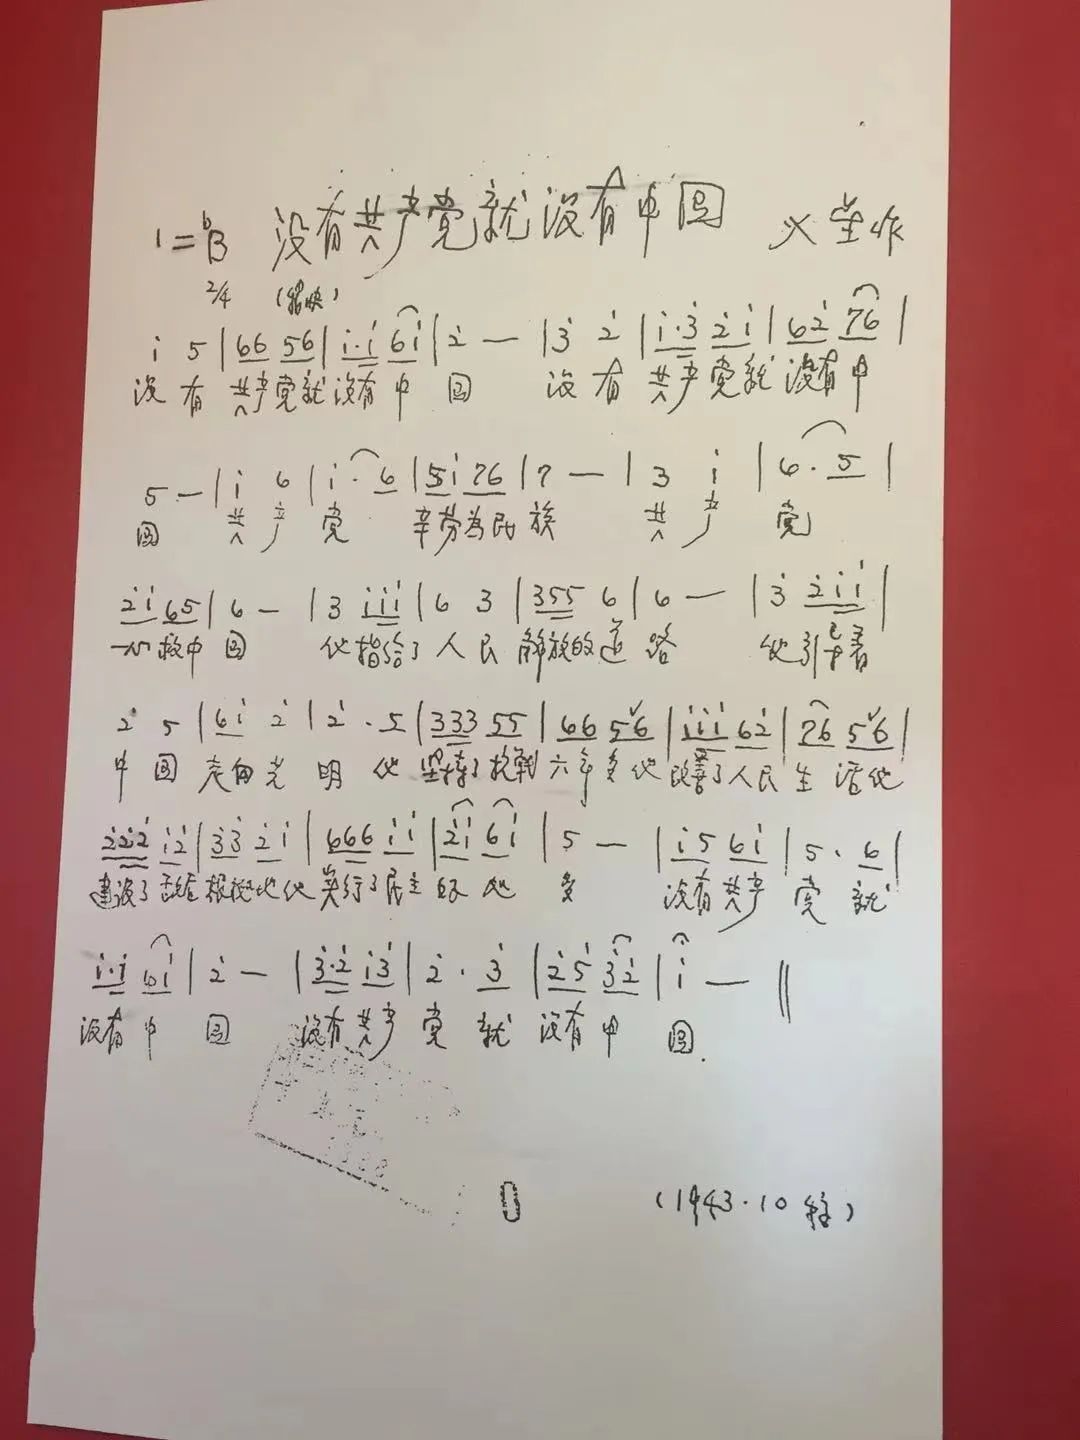 1=ᵇB 没有共产党就没有中国 火星作
2/4 (稍快)
i 5 | 66 56 | i·i 6i | 2̇ — | 3̇ 2̇ | i·3̇ 2̇i | 62̇ 76 |
没有 共产党就没有中国 没有 共产党就没有中
5 — | i 6 | i· 6 | 5i 76 | 7 — | 3 i | 6· 5 |
国 共产党 辛劳为民族 共产党
2̇i 65 | 6 — | 3 iii | 6 3 | 355 6 | 6 — | 3̇ 2̇ii |
一心救中国 他指给了人民解放的道路 他引导着
2̇ 5 | 6i 2̇ | 2̇· 5 | 333 55 | 66 5ˇ6 | iii 62̇ | 76 5ˇ6 |
中国走向光明 他坚持了抗战六年多他改善了人民生活他
2̇2̇2̇ i2̇ | 3̇3̇ 2̇i | 666 ii | 2̇i 6i | 5 — | i5 6i | 5· 6 |
建设了敌后根据地他实行了民主好处多 没有共产党就
i·i 6i | 2̇ — | 3̇·2̇ i3̇ | 2̇· 3̇ | 2̇5 3̇2̇ | i — ‖
没有中国 没有共产党就没有中国.
(1943·10 稿)